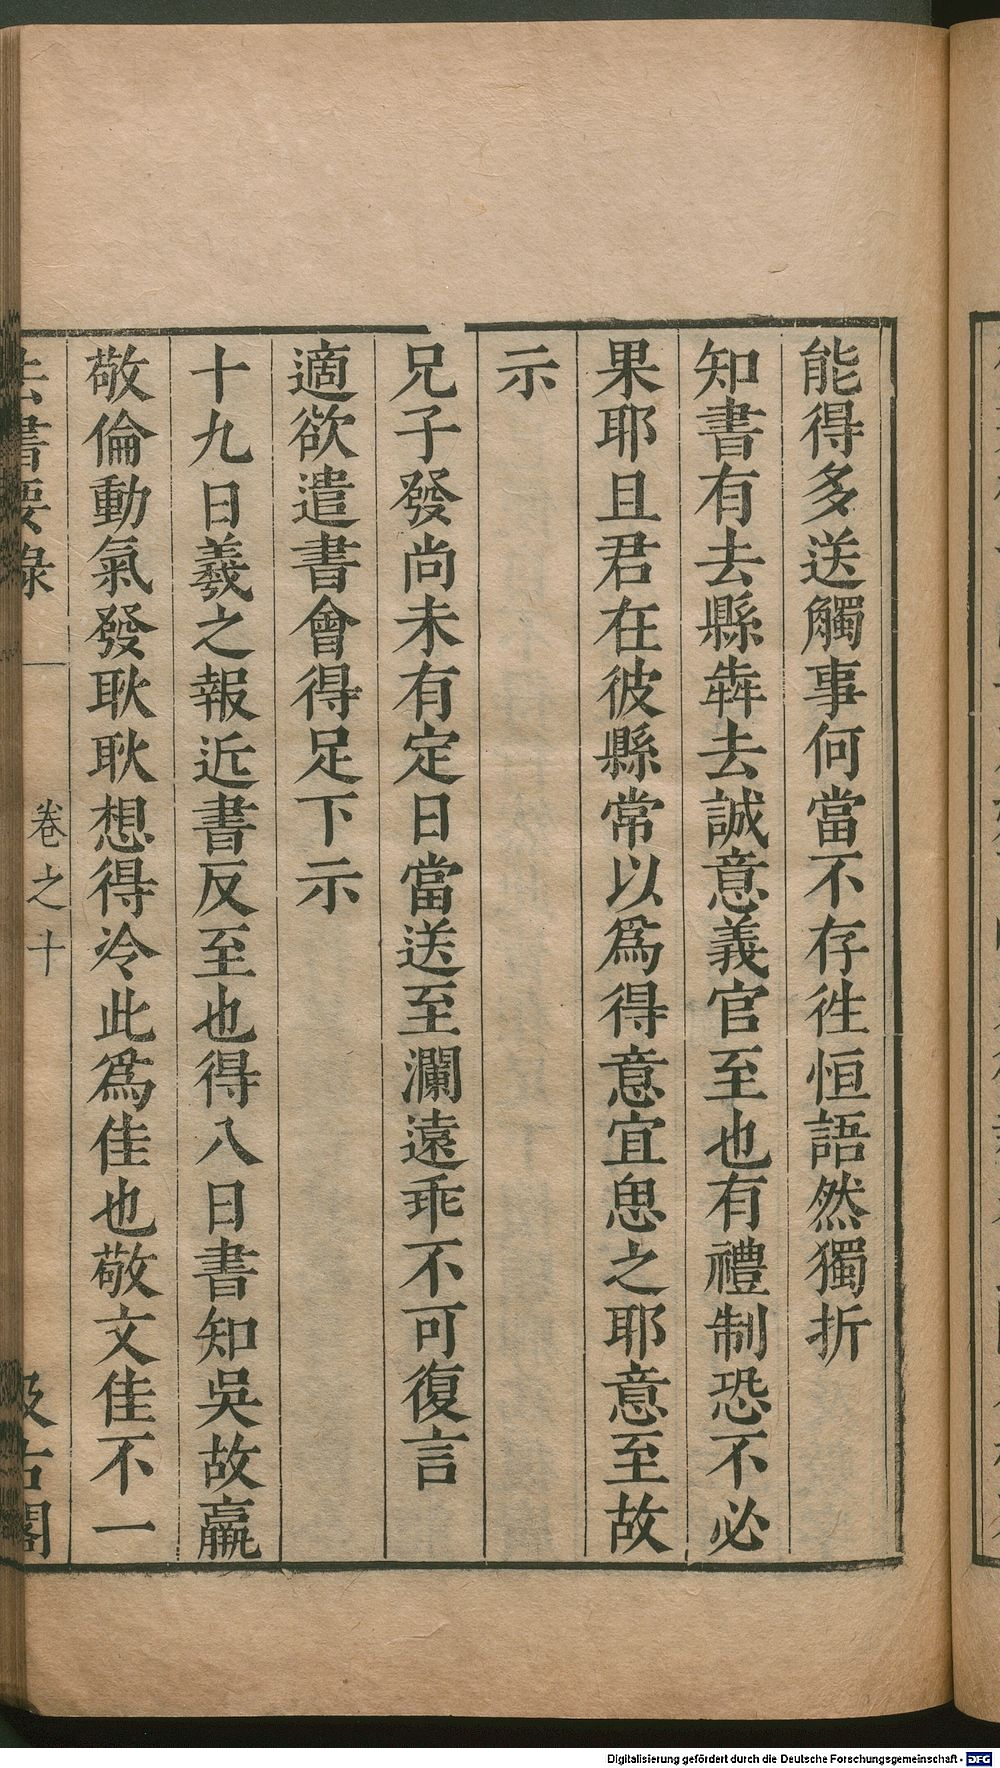 能得多送觸事何當不存徃恒語然獨折
知書有去縣犇去誠意義官至也有禮制恐不必
果耶且君在彼縣常以爲得意宜思之耶意至故
示
兄子發尚未有定日當送至瀾遠乖不可復言
適欲遣書會得足下示
十九日羲之報近書反至也得八日書知吳故羸
敬倫動氣發耿耿想得冷此爲佳也敬文佳不一
法書要錄
卷之十
汲古閣
Digitalisierung gefördert durch die Deutsche Forschungsgemeinschaft - DFG